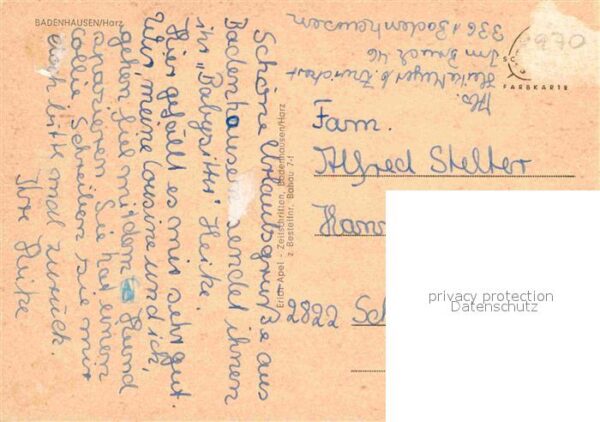 BADENHAUSEN/Harz
Schöne Urlaubsgrüße aus
Badenhausen sendet ihnen
ihr "Babysitter" Heike.
Hier gefällt es mir sehr gut.
Wir, meine Cousine und ich,
gehen viel mit dem Hund
spazieren. Sie hat einen
Collie. Schreiben sie mir
doch bitte mal zurück.
Ihre Heike
Erich Apel - Zeitschriften, Badenhausen/Harz
z Bestellnr. Bahau 7-1
Abs.
Heike Meyer b.
Im Bruch 46
3361 Badenhausen
FARBKARTE
Fam.
Alfred Stelter
Hann
2822 Sch
privacy protection
Datenschutz